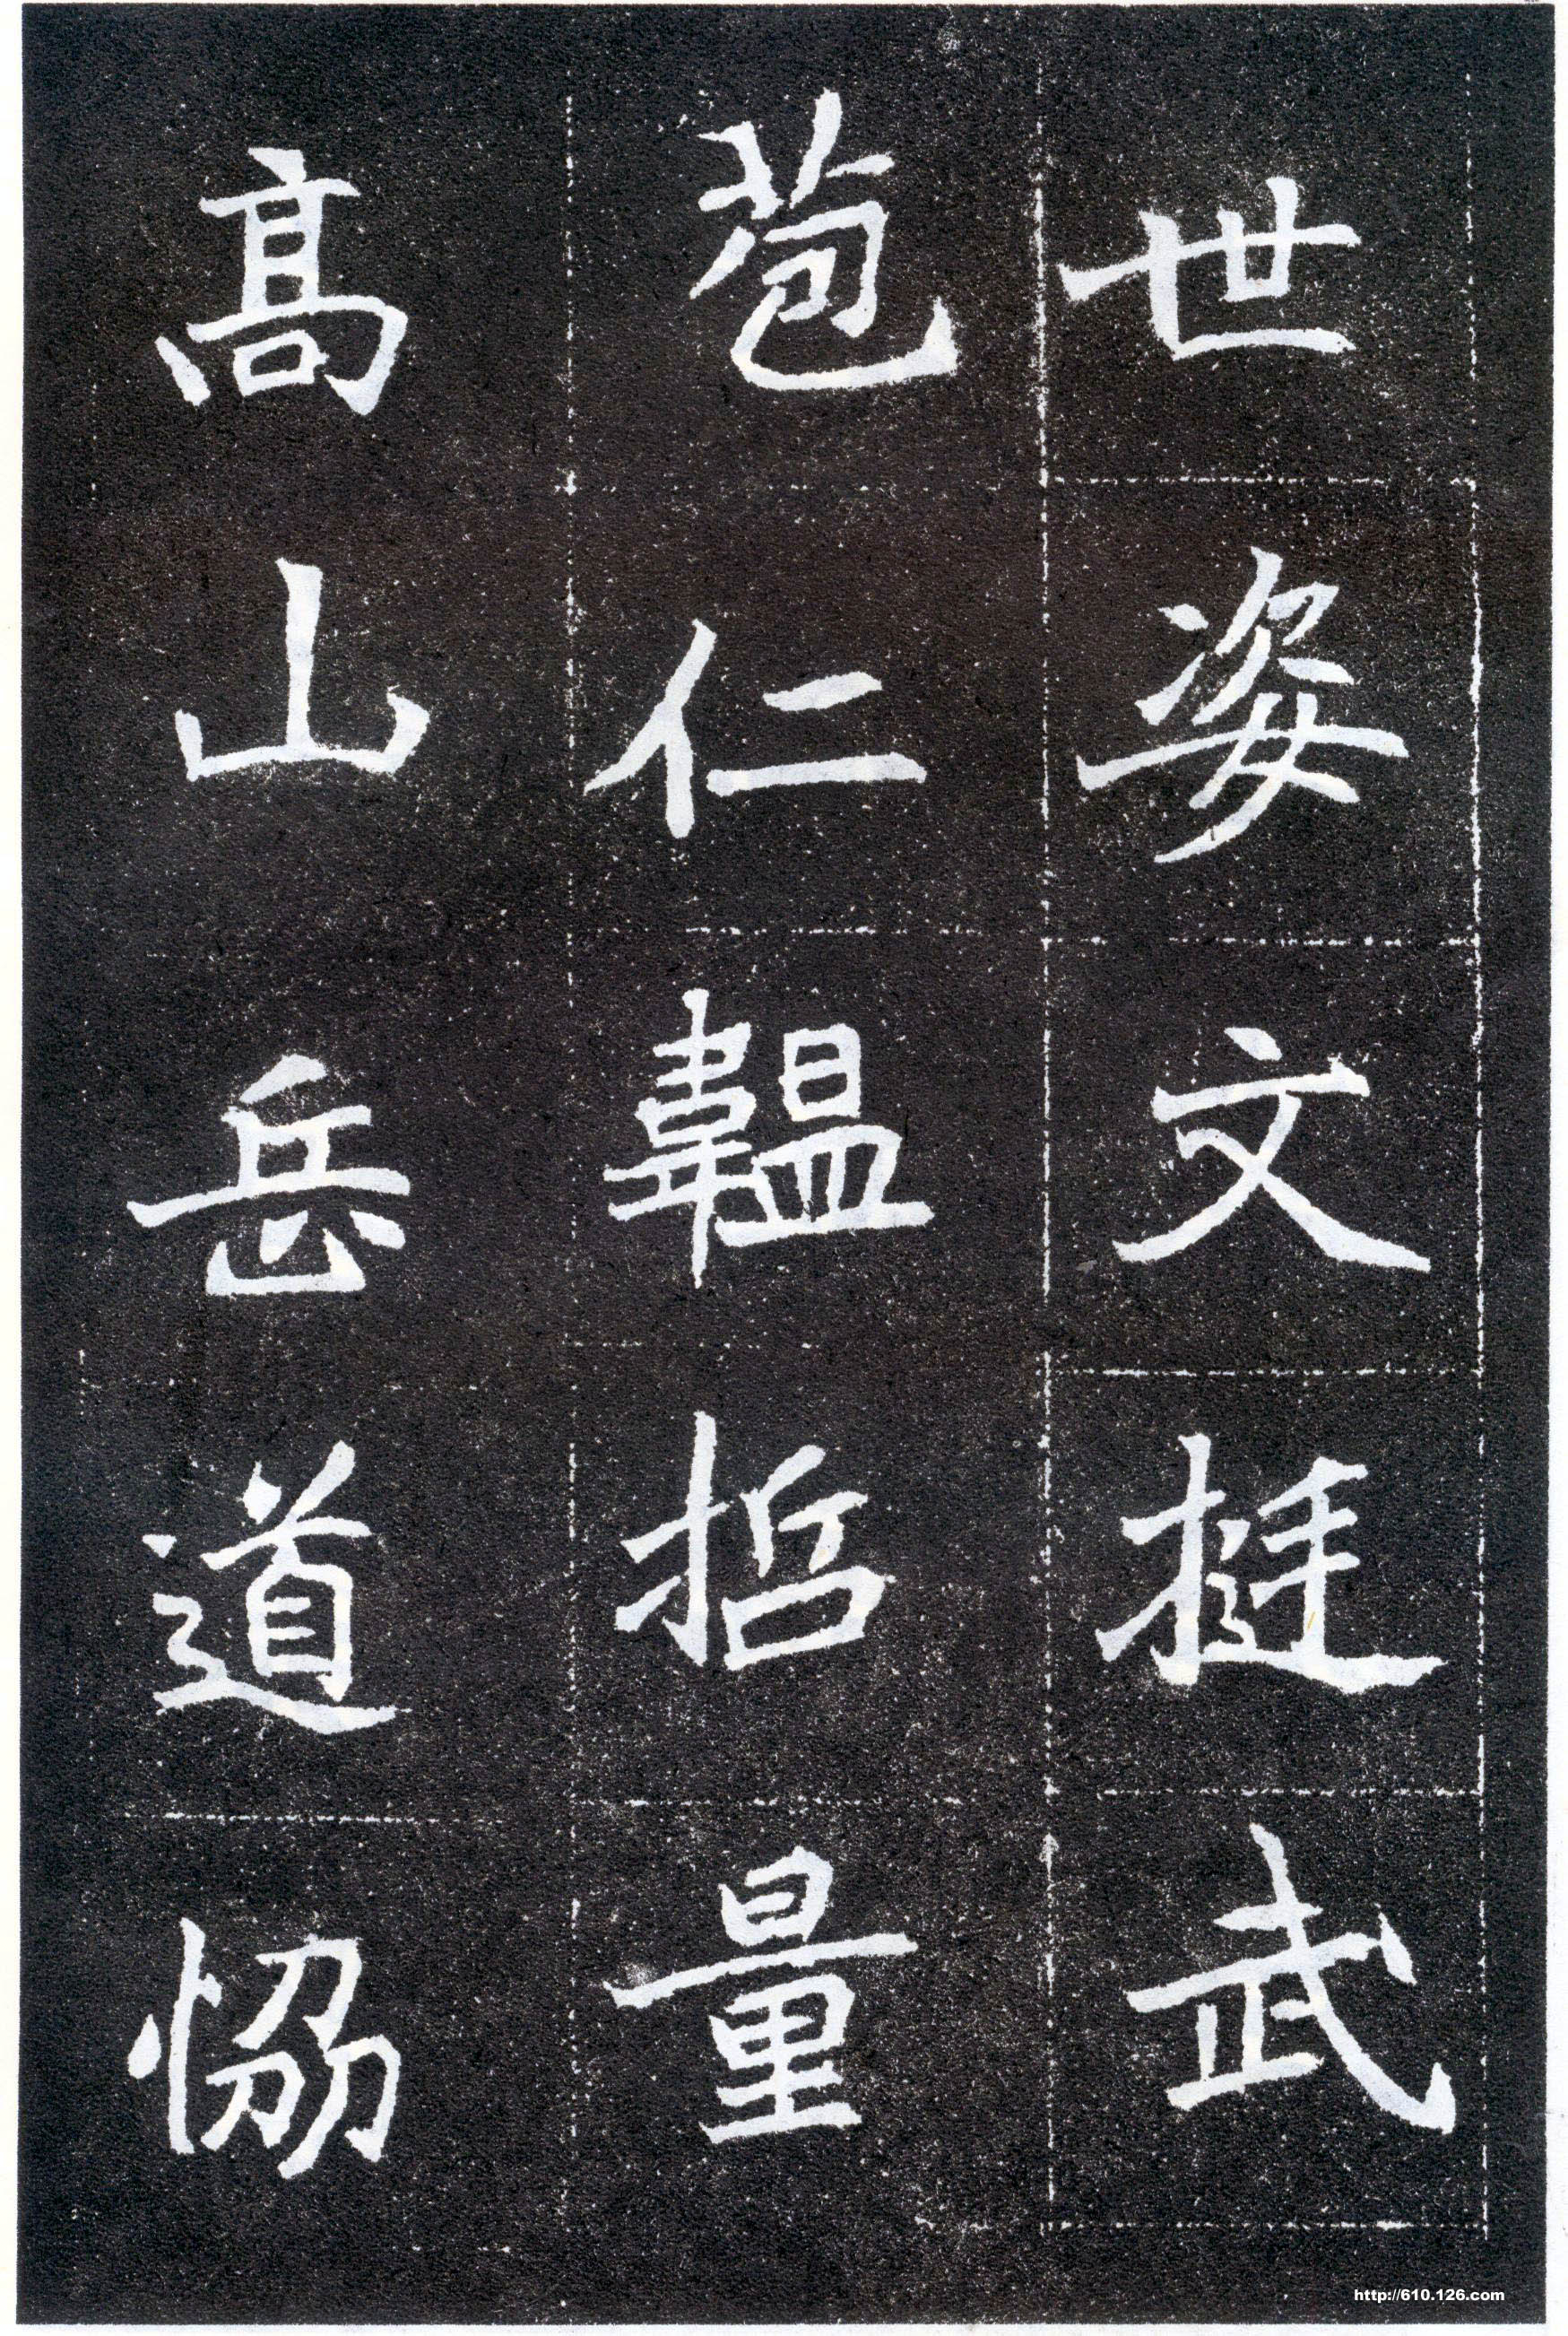 世姿文挺武
苞仁韞哲量
高山岳道恊
http://610.126.com